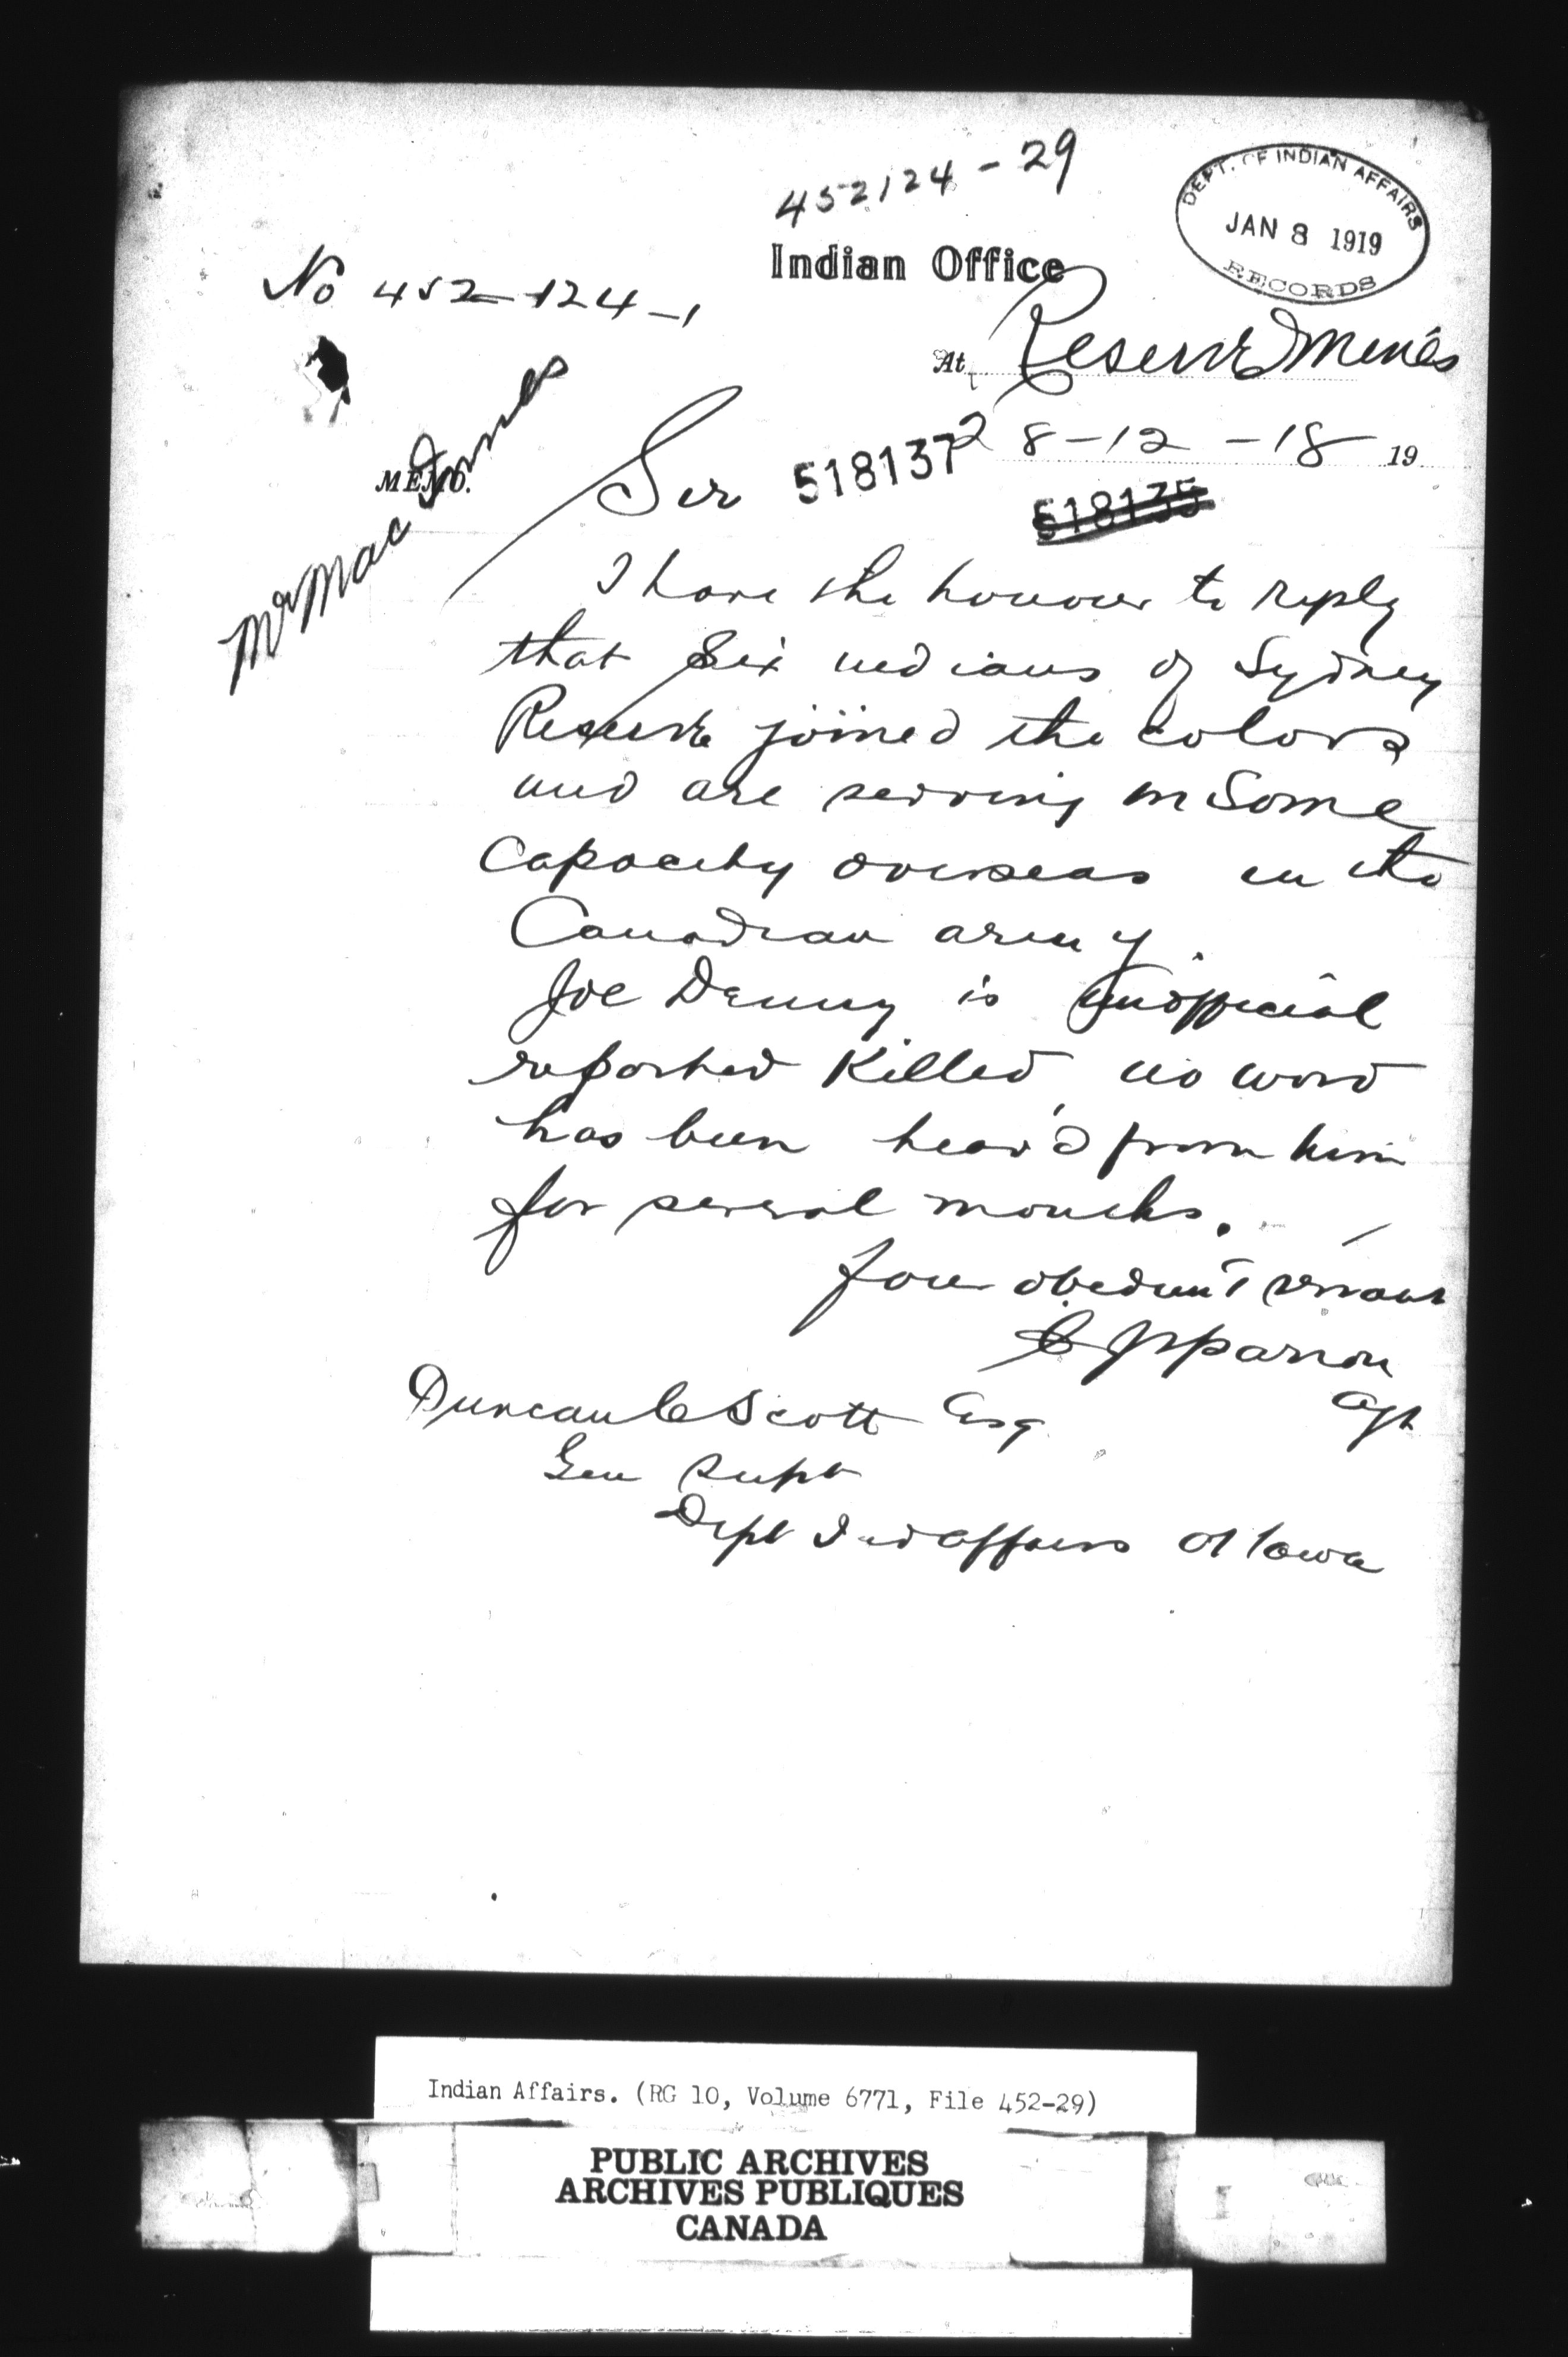 452124-29
DEPT. OF INDIAN AFFAIRS
JAN 8 1919
RECORDS
Indian Office
No 452-124-1
At Reserve Mines
28-12-18 19
MEMO.
Mr Mac Innes
Sir
518137
518135
I have the honour to reply
that six indians of Sydney
Reserve joined the colors
and are serving in some
capacity overseas in the
Canadian army.
Joe Denny is unofficial
reported killed, no word
has been hear'd from him
for several months.
your obedient servant
Agt
Duncan C Scott Esq
Gen Supt
Dept Ind affairs Ottawa
Indian Affairs. (RG 10, Volume 6771, File 452-29)
PUBLIC ARCHIVES
ARCHIVES PUBLIQUES
CANADA